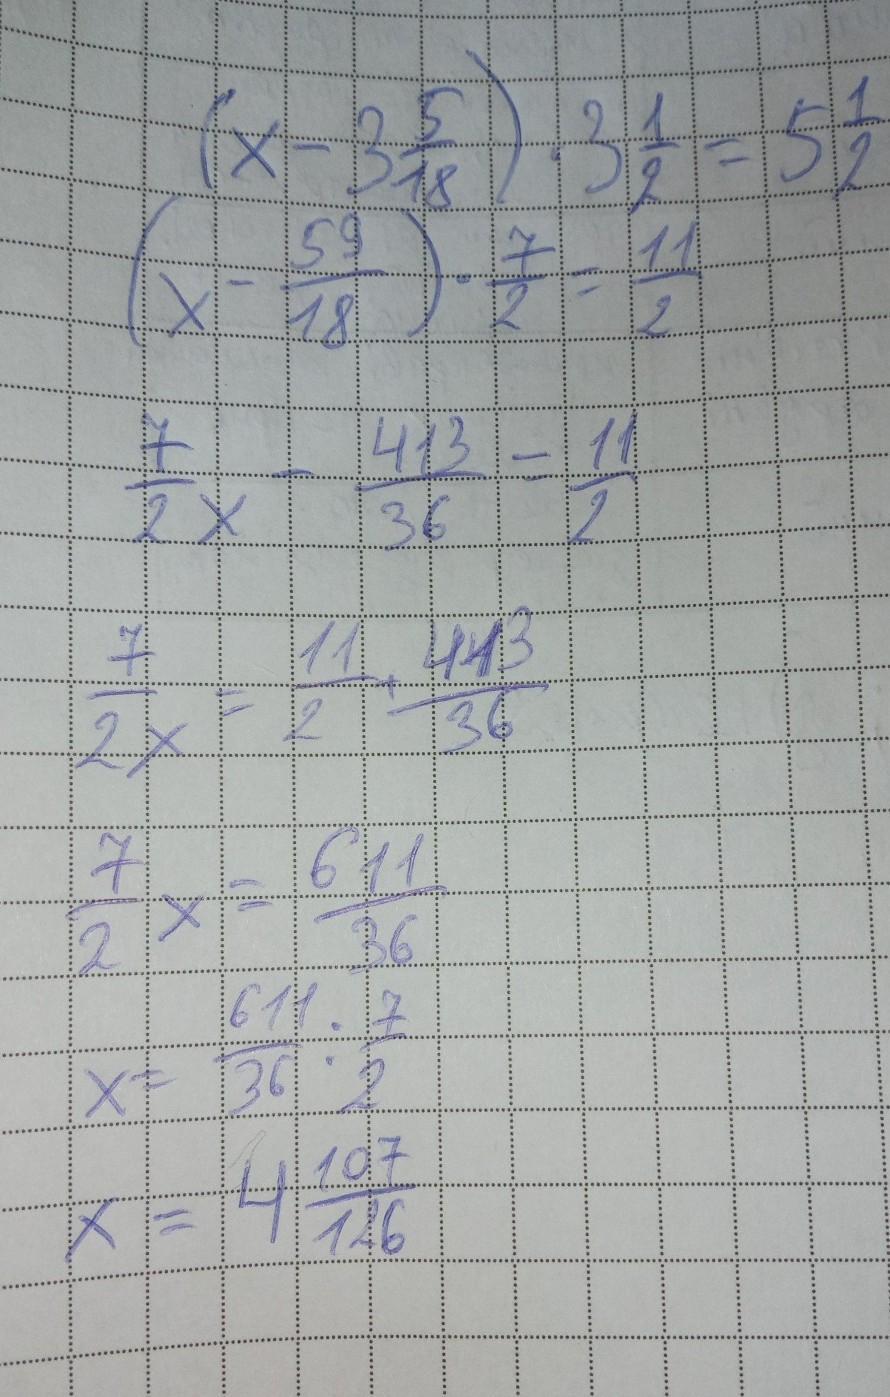 (x - 3 5/18) · 3 1/2 = 5 1/2
(x - 59/18) · 7/2 = 11/2
7/2 x - 413/36 = 11/2
7/2 x = 11/2 + 413/36
7/2 x = 611/36
x = 611/36 : 7/2
x = 4 107/126